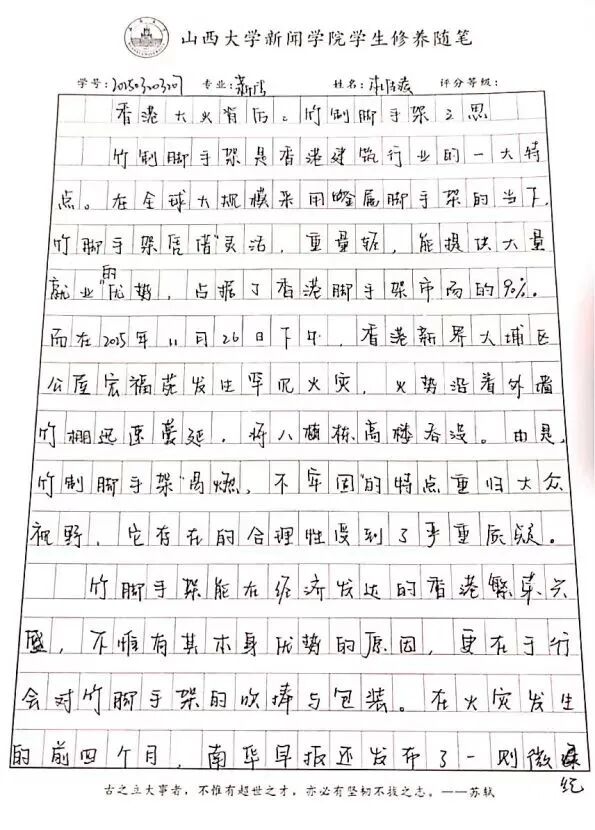 山西大学新闻学院学生修养随笔
学号: 专业: 姓名: 评分等级:
香港大火背后:竹制脚手架之思
竹制脚手架是香港建筑行业的一大特
点。在全球大规模采用金属脚手架的当下,
竹脚手架凭借"灵活,重量轻,能提供大量
就业"的优势,占据了香港脚手架市面的90%。
而在2025年11月26日下午,香港新界大埔区
公屋宏福苑发生罕见火灾,火势沿着外墙
竹棚迅速蔓延,将八幢栋高楼吞没。由是,
竹制脚手架"易燃,不牢固"的特点重归大众
视野,它存在的合理性受到了严重质疑。
竹脚手架能在经济发达的香港繁荣兴
盛,不惟有其本身优势的原因,更在于行
会对竹脚手架的吹捧与包装。在火灾发生
的前四个月,南华早报还发布了一则微纪
古之立大事者,不惟有超世之才,亦必有坚韧不拔之志。——苏轼